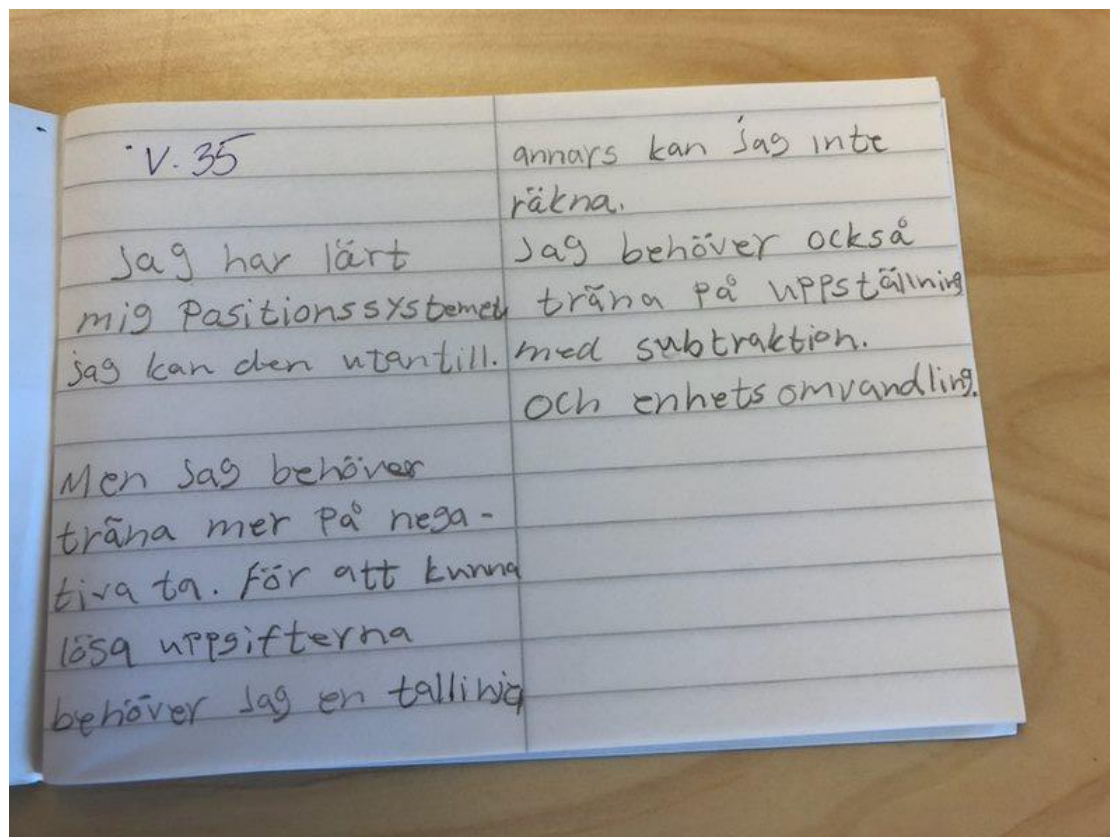 V. 35
Jag har lärt
mig Positionssystemet
jag kan den utantill.
Men Jag behöver
träna mer på nega-
tiva ta. För att kunna
lösa uppgifterna
behöver Jag en tallinja
annars kan jag inte
räkna.
Jag behöver också
träna på uppställning
med subtraktion.
Och enhetsomvandling.